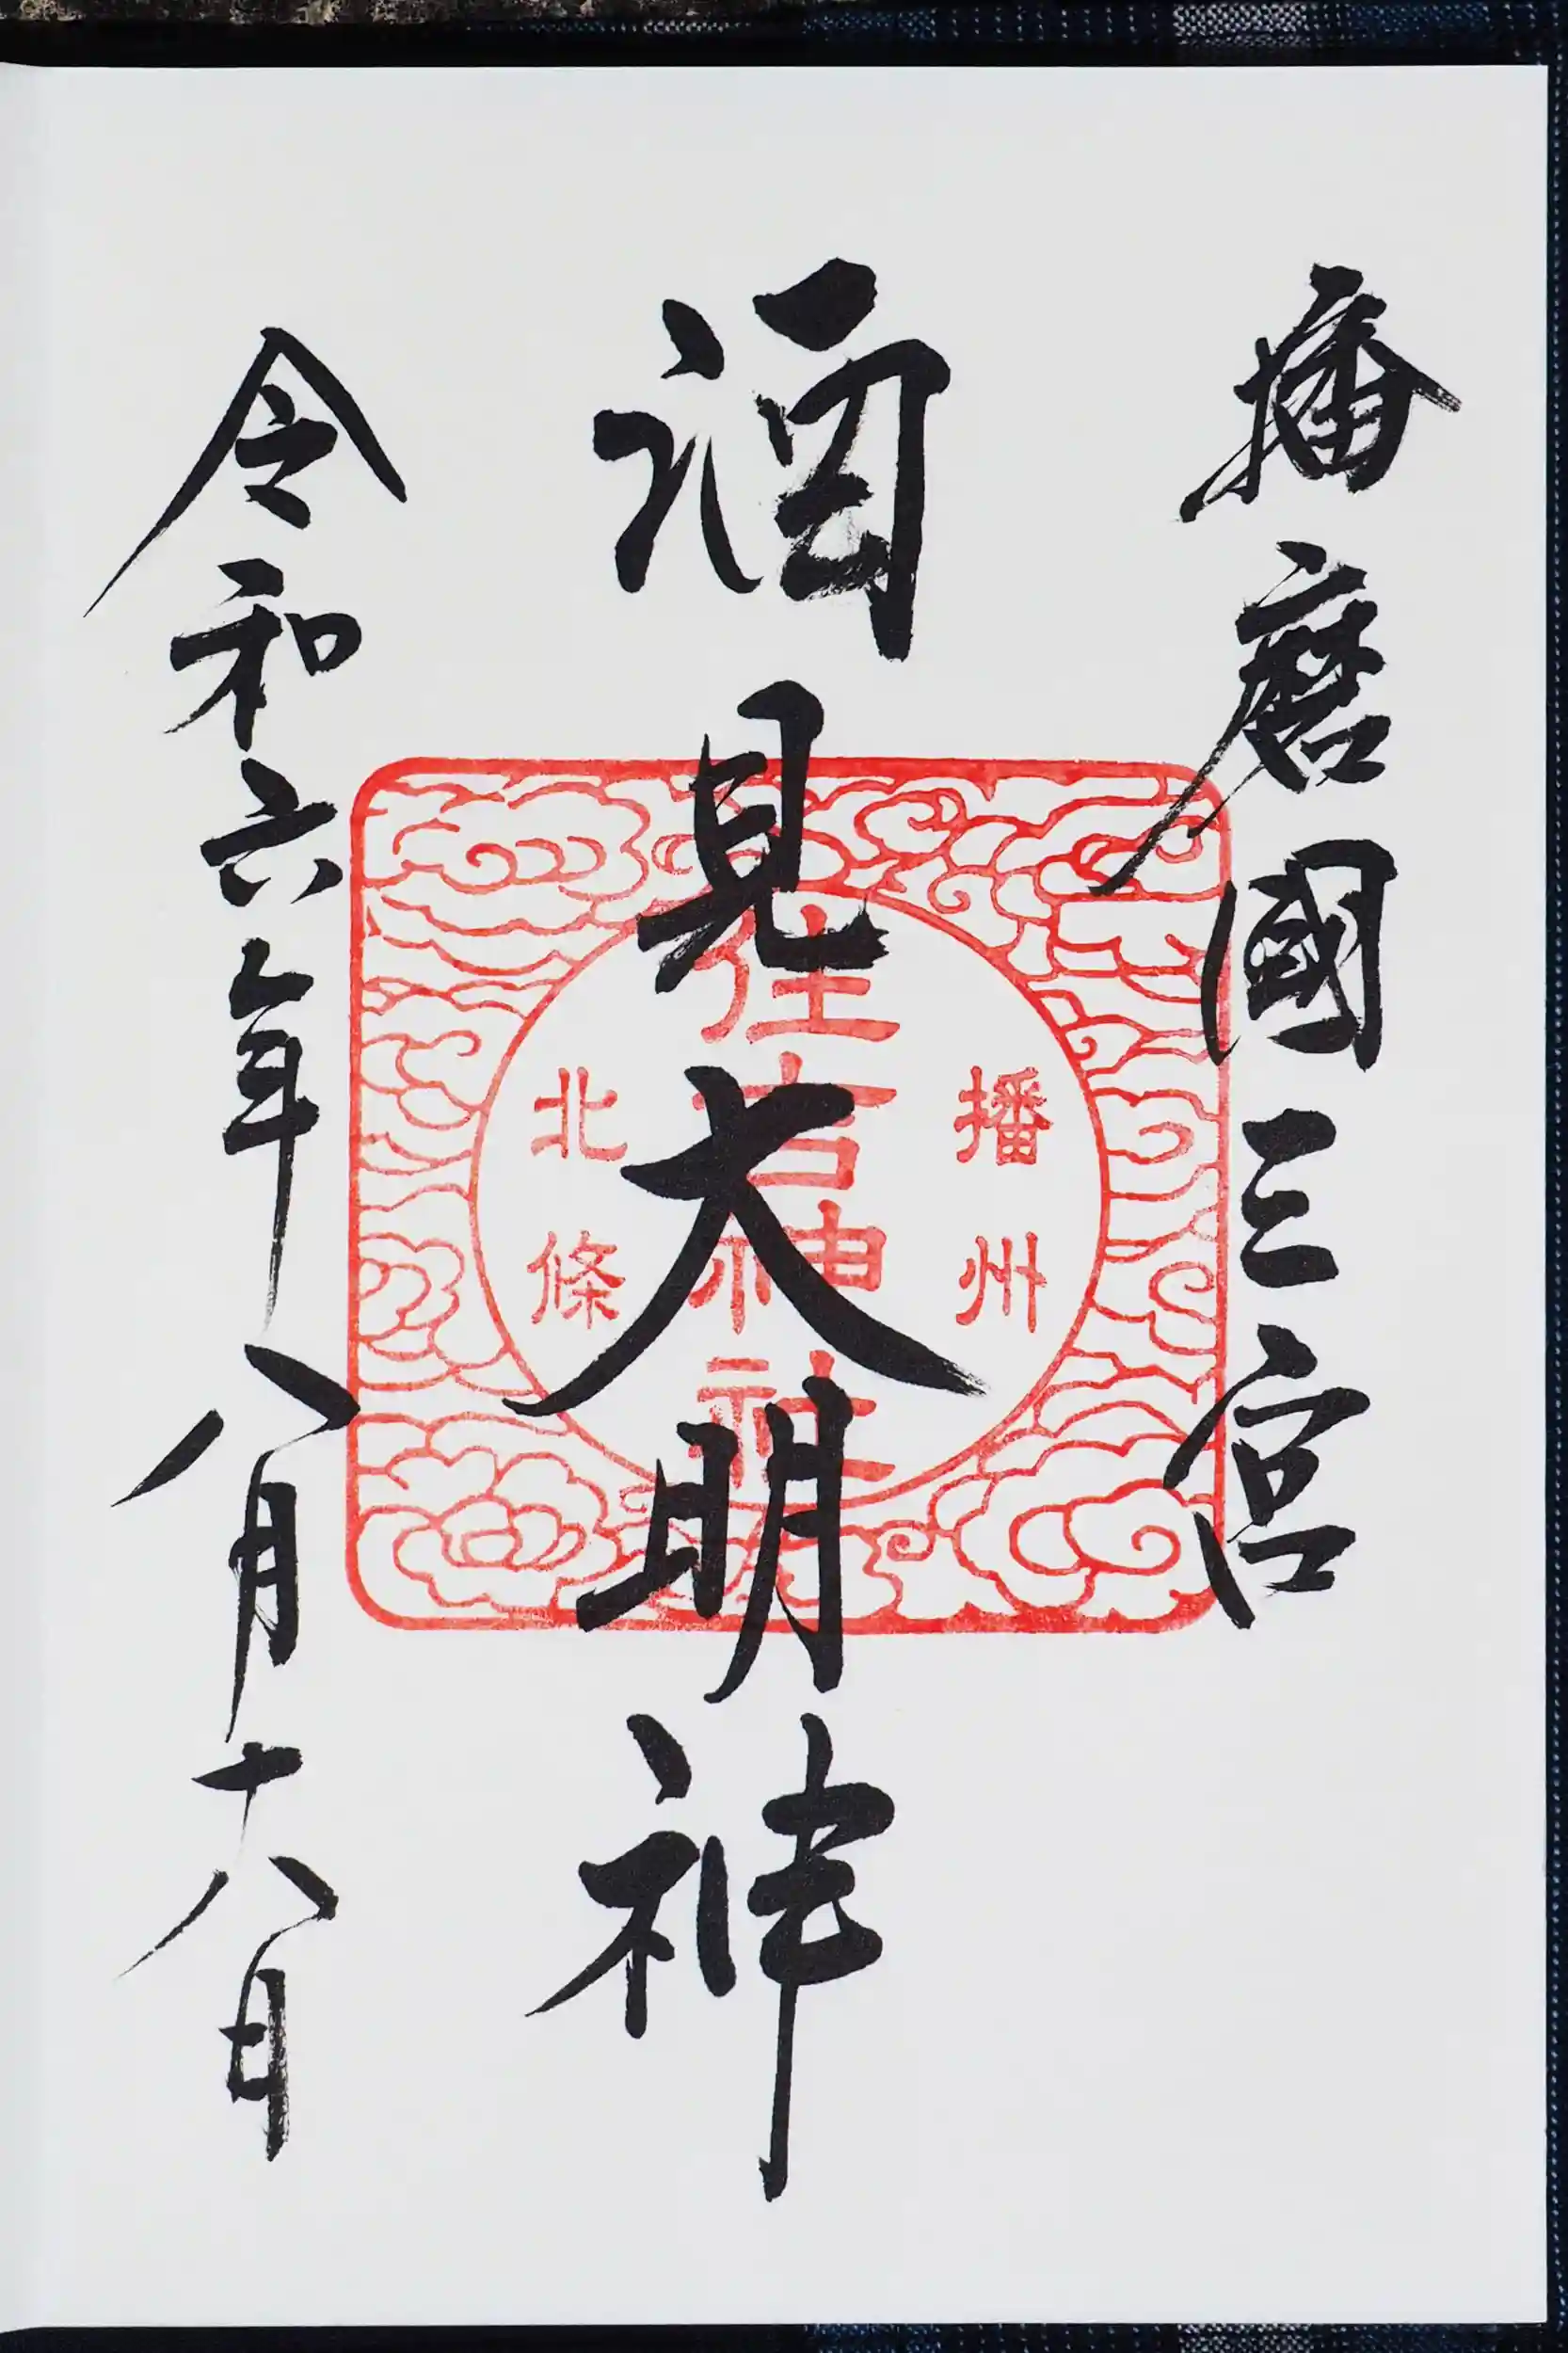 播磨國三宮
酒見大明神
令和六年八月十八日
播州
住吉神社
北條